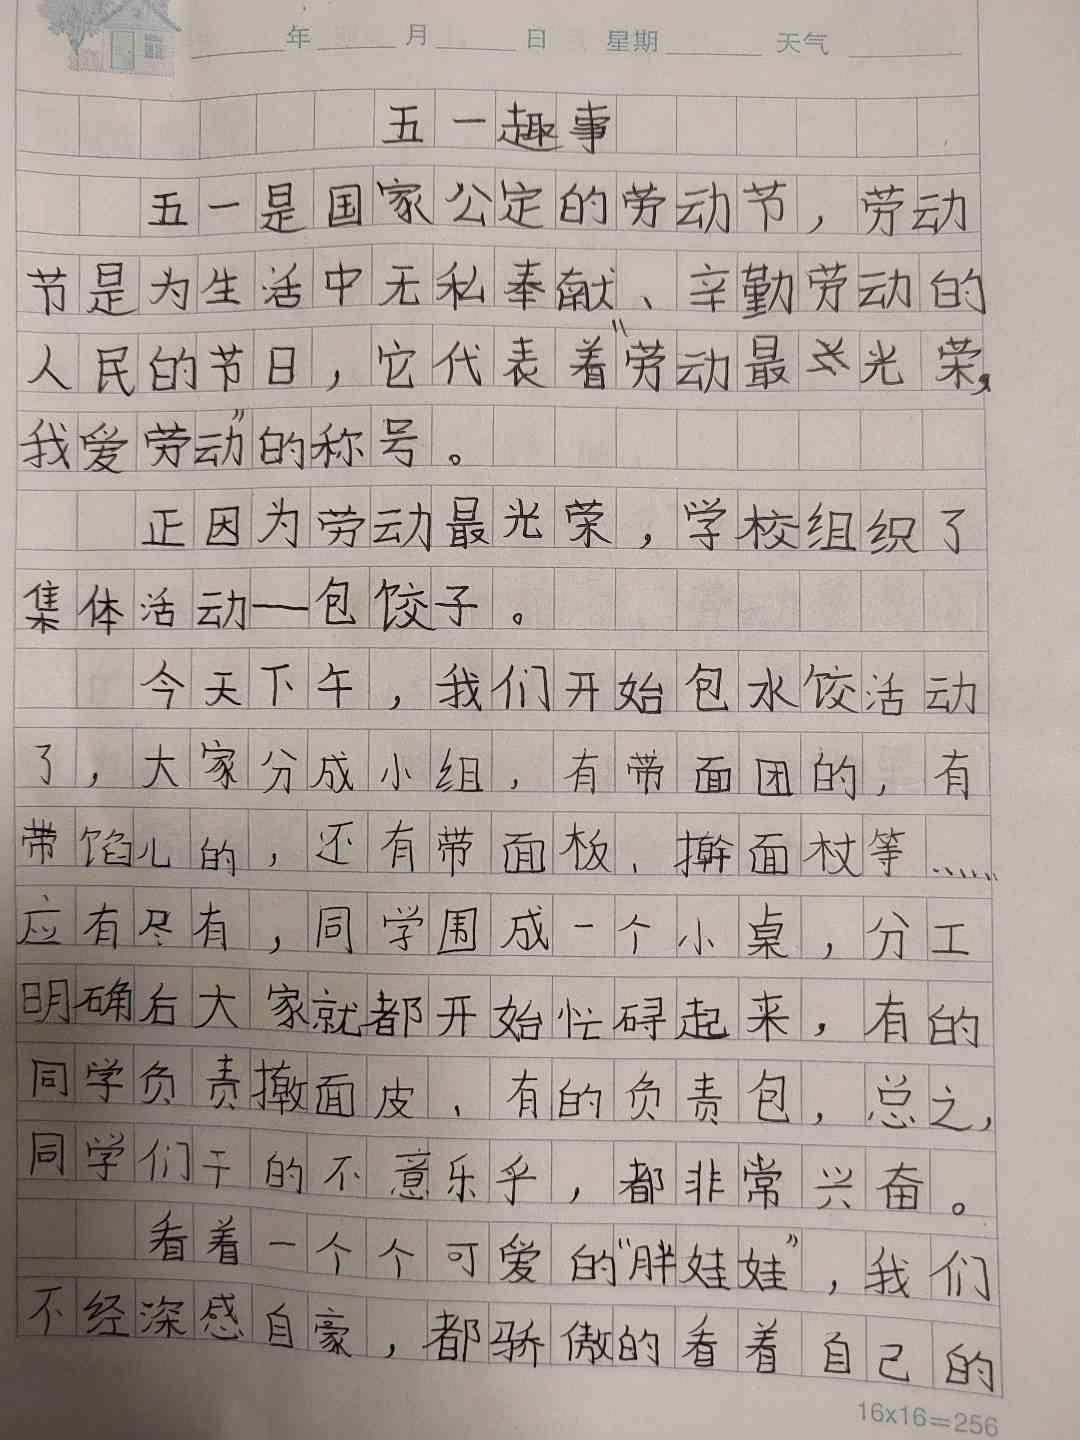 年 月 日 星期 天气
五一趣事
五一是国家公定的劳动节，劳动
节是为生活中无私奉献、辛勤劳动的
人民的节日，它代表着“劳动最光荣，
我爱劳动”的称号。
正因为劳动最光荣，学校组织了
集体活动——包饺子。
今天下午，我们开始包水饺活动
了，大家分成小组，有带面团的，有
带馅儿的，还有带面板、擀面杖等……
应有尽有，同学围成一个小桌，分工
明确后大家就都开始忙碍起来，有的
同学负责擀面皮、有的负责包，总之，
同学们干的不意乐乎，都非常兴奋。
看着一个个可爱的“胖娃娃”，我们
不经深感自豪，都骄傲的看着自己的
16x16=256